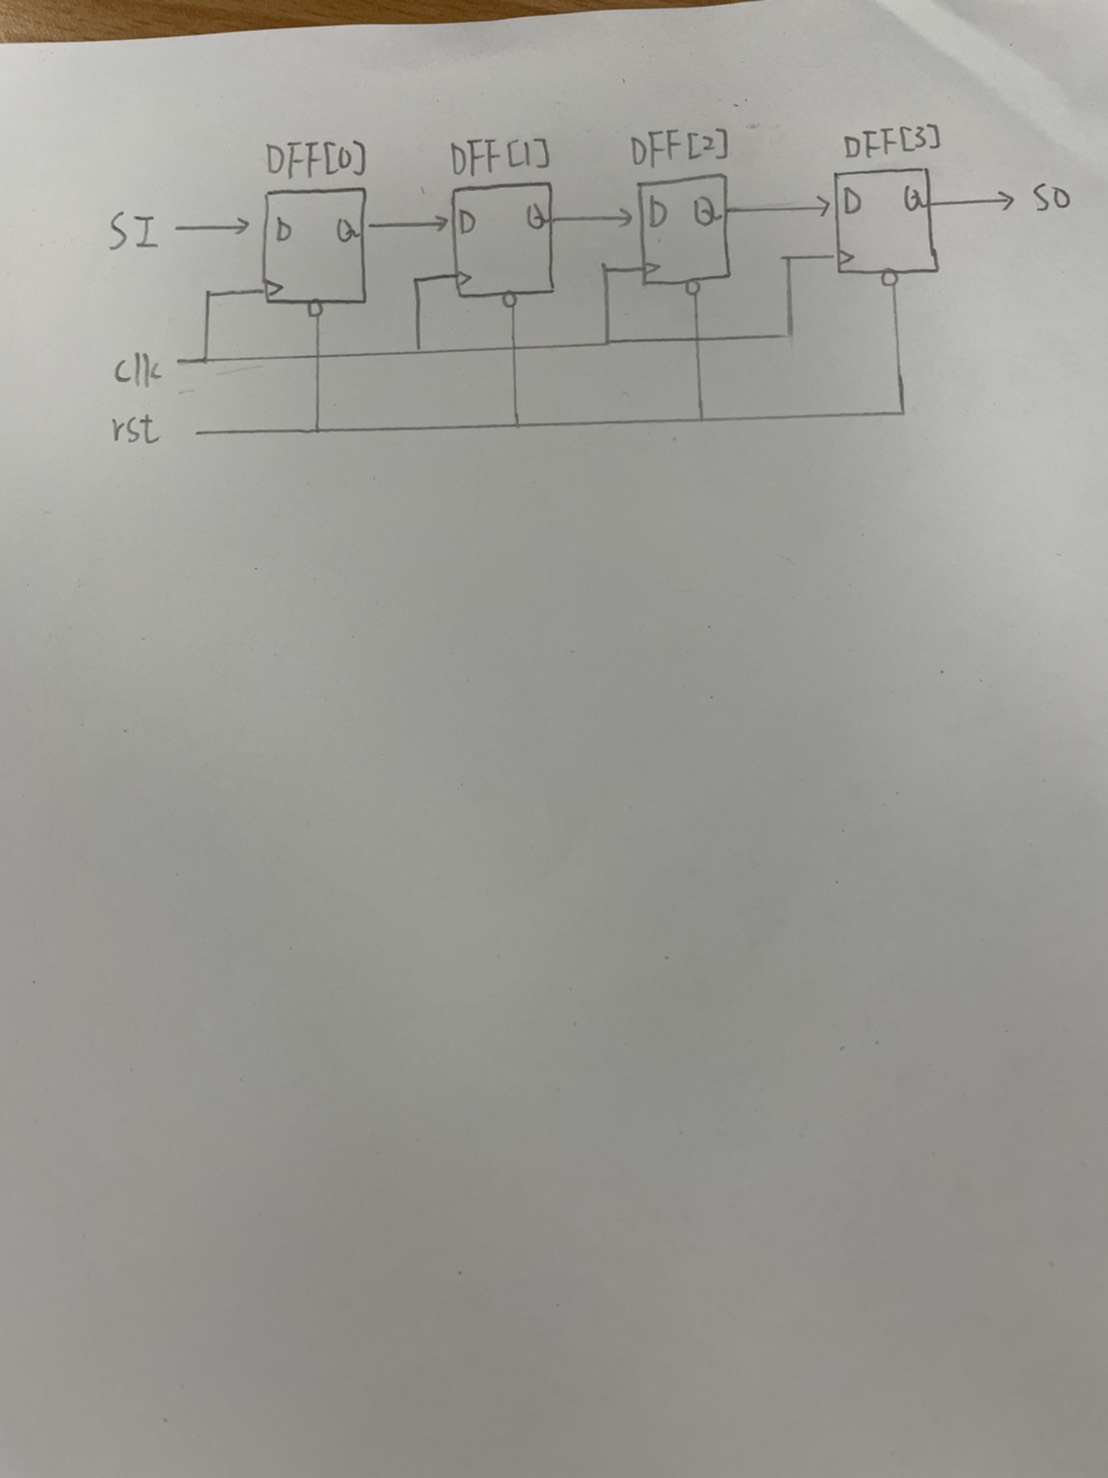 DFF[0] DFF[1] DFF[2] DFF[3]
SI D Q D Q D Q D Q SO
clk
rst